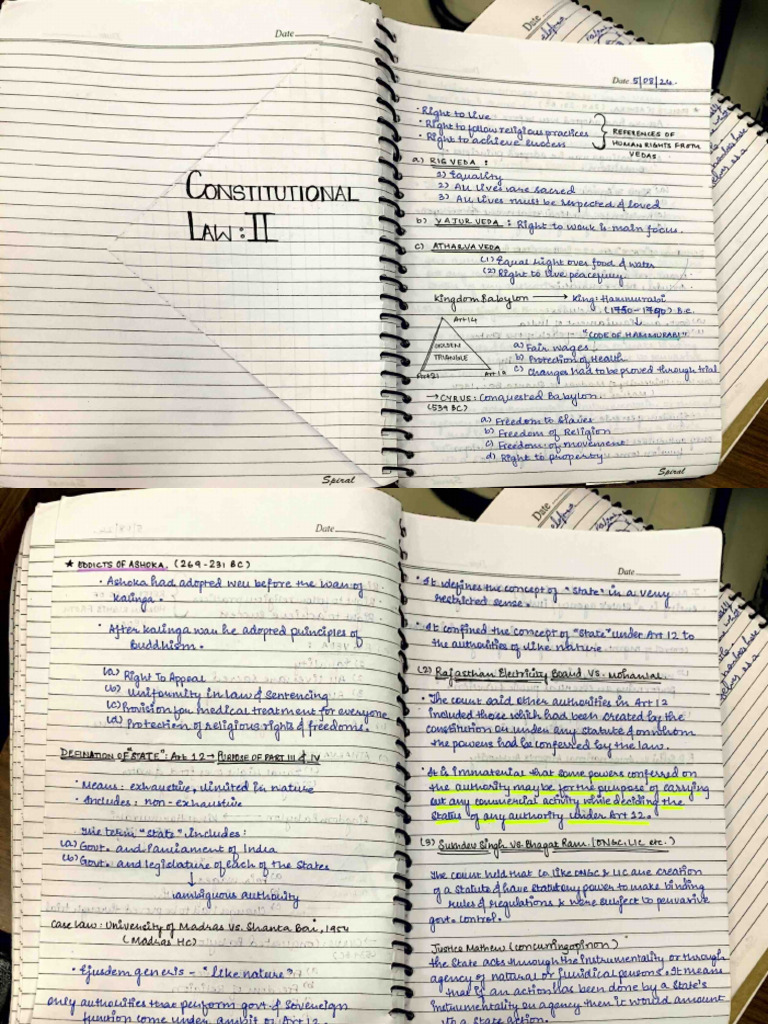 Date
CONSTITUTIONAL
LAW : II
Spiral
Date 5/08/24.
• Right to live
• Right to follow religious practices
• Right to achieve success
REFERENCES OF
HUMAN RIGHTS FROM
VEDAS.
a) RIGVEDA :
1) Equality
2) All lives are sacred
3) All lives must be respected & loved
b) YAJUR VEDA : Right to work is main focus.
c) ATHARVAVEDA
(1) Equal right over food & water
(2) Right to live peacefully
Kingdom Babylon → King: Hammurabi
B.C.
"CODE OF HAMMURABI"
Art 14
GOLDEN
TRIANGLE
Art 21
Art 19
a) Fair wages
b) Protection of Health
c) Changes had to be proved through trial
→ CYRUS: Conquested Babylon.
(539 BC)
a) Freedom to Slaves
b) Freedom of Religion
c) Freedom of movement
d) Right to property
Spiral
Date
★ EDDICTS OF ASHOKA. (269-231 BC)
• Ashoka had adopted well before the war of
Kalinga.
• After Kalinga war he adopted principles of
buddhism.
(a) Right To Appeal
(b) Uniformity in law & sentencing
(c) Provision for medical treatment for everyone
(d) Protection of religious rights & freedoms.
DEFINATION OF "STATE": Art 12 → PURPOSE OF PART III & IV
• Means: exhaustive, limited in nature
• Includes: non-exhaustive
The term "State" includes:
(a) Govt. and Parliament of India
(b) Govt. and legislature of each of the States
↓
ambiguous authority
Case law: University of Madras vs. Shanta Bai, 1954
(Madras HC)
• Ejusdem generis - "like nature"
only authorities that perform govt. & sovereign
function come under ambit of Art 12.
Date
• It defines the concept of "State" in a very
restricted sense.
• It confined the concept of "State" under Art 12 to
the authorities of like nature
(2) Rajasthan Electricity Board vs. Mohanlal
• The court said other authorities in Art 12
included those which had been created by the
constitution or under any statute & on whom
the powers had be conferred by the law.
• It is immaterial that some powers conferred on
the authority may be for the purpose of carrying
out any commercial activity while deciding the
status of any authority under Art 12.
(3) Sukhdev Singh vs. Bhagat Ram. (ONGC, LIC etc.)
The court held that Co like ONGC & LIC are creation
of a Statute & have statutory power to make binding
rules & regulations & were subject to pervasive
govt. control.
Justice Mathews (concurring opinion)
The State acts through the instrumentality or through
agency of natural or juridical persons. It means
that if an action has been done by a State's
instrumentality or agency then it would amount
to a state action.
Date
Date